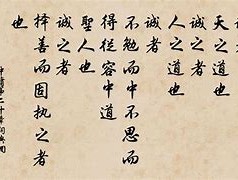 诚
天之道也
诚之者
人之道也
诚者
不勉而中不思而
得從容中道
聖人也
诚之者
择善而固执之者
也